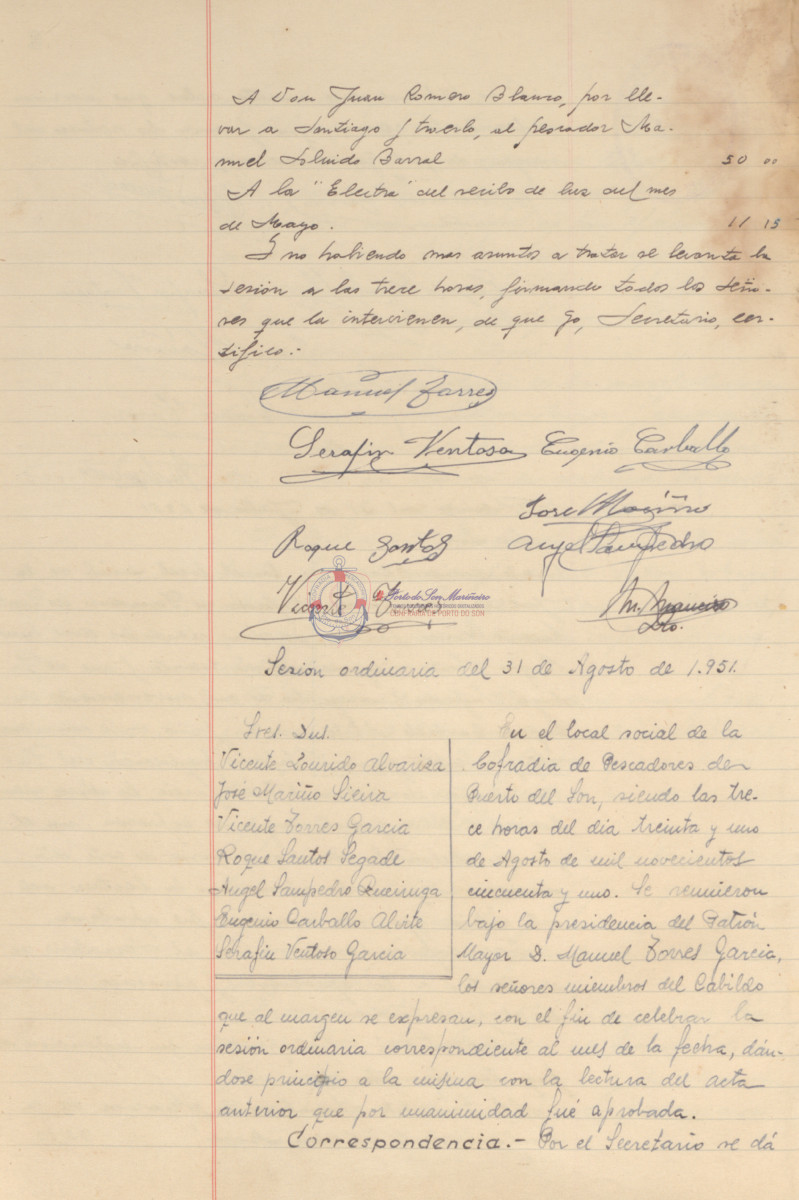 A Don Juan Romero Blanco, por lle-
var a Santiago y traerlo, al pescador Ma-
nuel Barral 50 00
A la "Electra" del recibo de luz del mes
de Mayo. 11 15
Y no habiendo mas asuntos a tratar se levanta la
sesión a las trece horas, firmando todos los Seño-
res que la intervienen, de que yo, Secretario, cer-
tifico.-
Manuel Torres
Serafin Ventoso Eugenio Carballo
José Mariño
Roque Santos Angel Sampedro
Vicente Torres
Porto do Son Mariñeiro
Srio.
Sesión ordinaria del 31 de Agosto de 1.951.
Sres. Dns.
Vicente Lourido Alvariza
José Mariño Sieira
Vicente Torres Garcia
Roque Santos Segade
Angel Sampedro Queiruga
Eugenio Carballo Alvite
Serafin Ventoso Garcia
En el local social de la
Cofradia de Pescadores de
Puerto del Son, siendo las tre-
ce horas del dia treinta y uno
de Agosto de mil novecientos
cincuenta y uno. Se reunieron
bajo la presidencia del Patrón
Mayor D. Manuel Torres Garcia,
los señores miembros del Cabildo
que al margen se expresan, con el fin de celebrar la
sesión ordinaria correspondiente al mes de la fecha, dán-
dose principio a la misma con la lectura del acta
anterior que por unanimidad fué aprobada.
Correspondencia.- Por el Secretario se dá